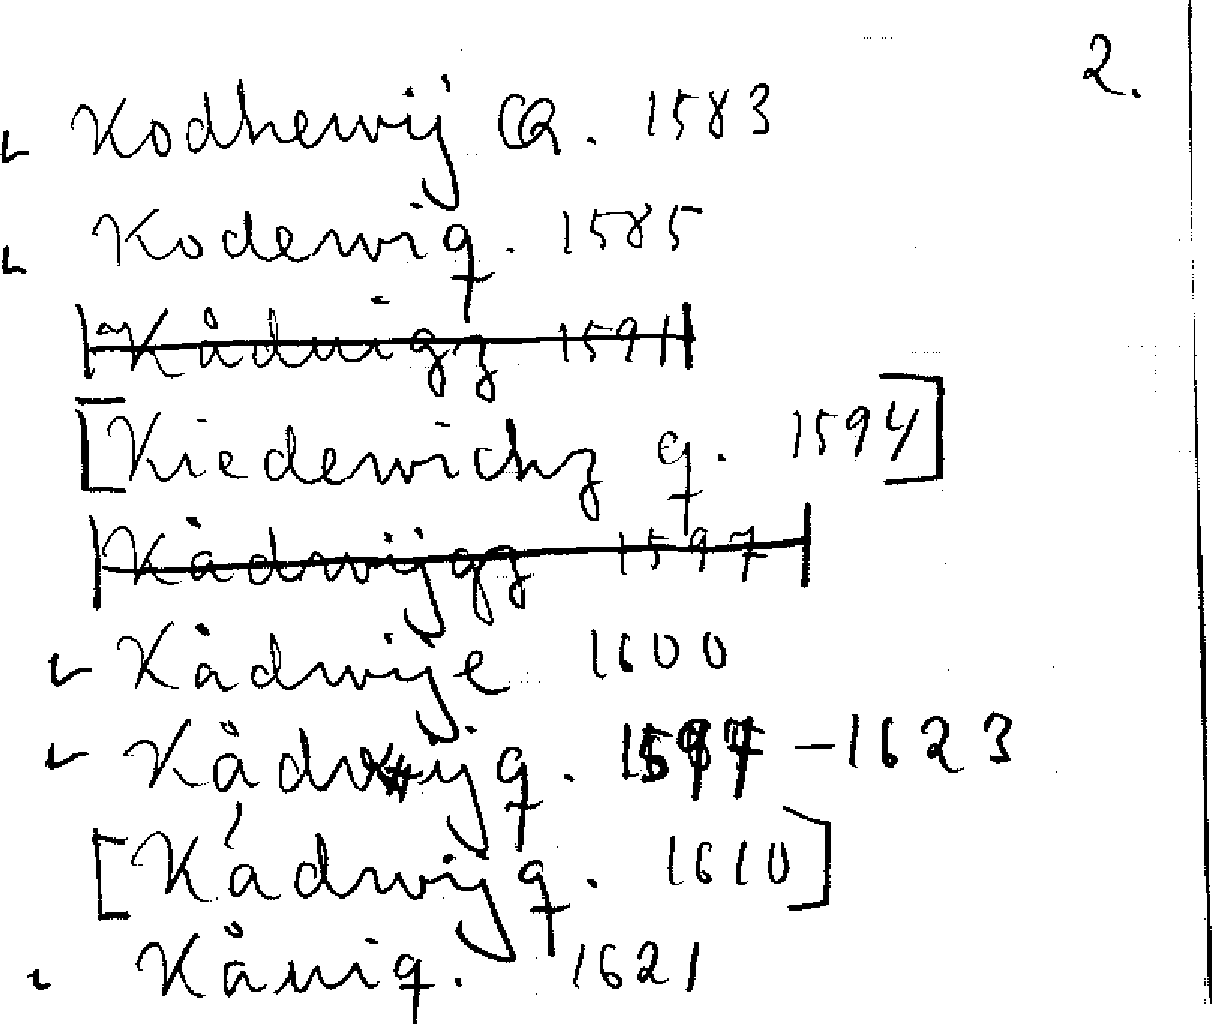 2.
Kodhewij Q. 1583
Kodewiq. 1585
Kådwigz 1591
[Kiedewichz q. 1594]
Kådwijgz 1597
Kådwije 1600
Kådwijq. 1597-1623
[Kådwijq. 1610]
Kåuiq. 1621